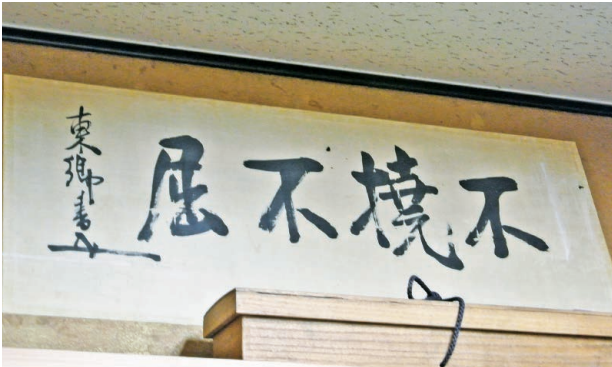 不撓不屈
東郷書